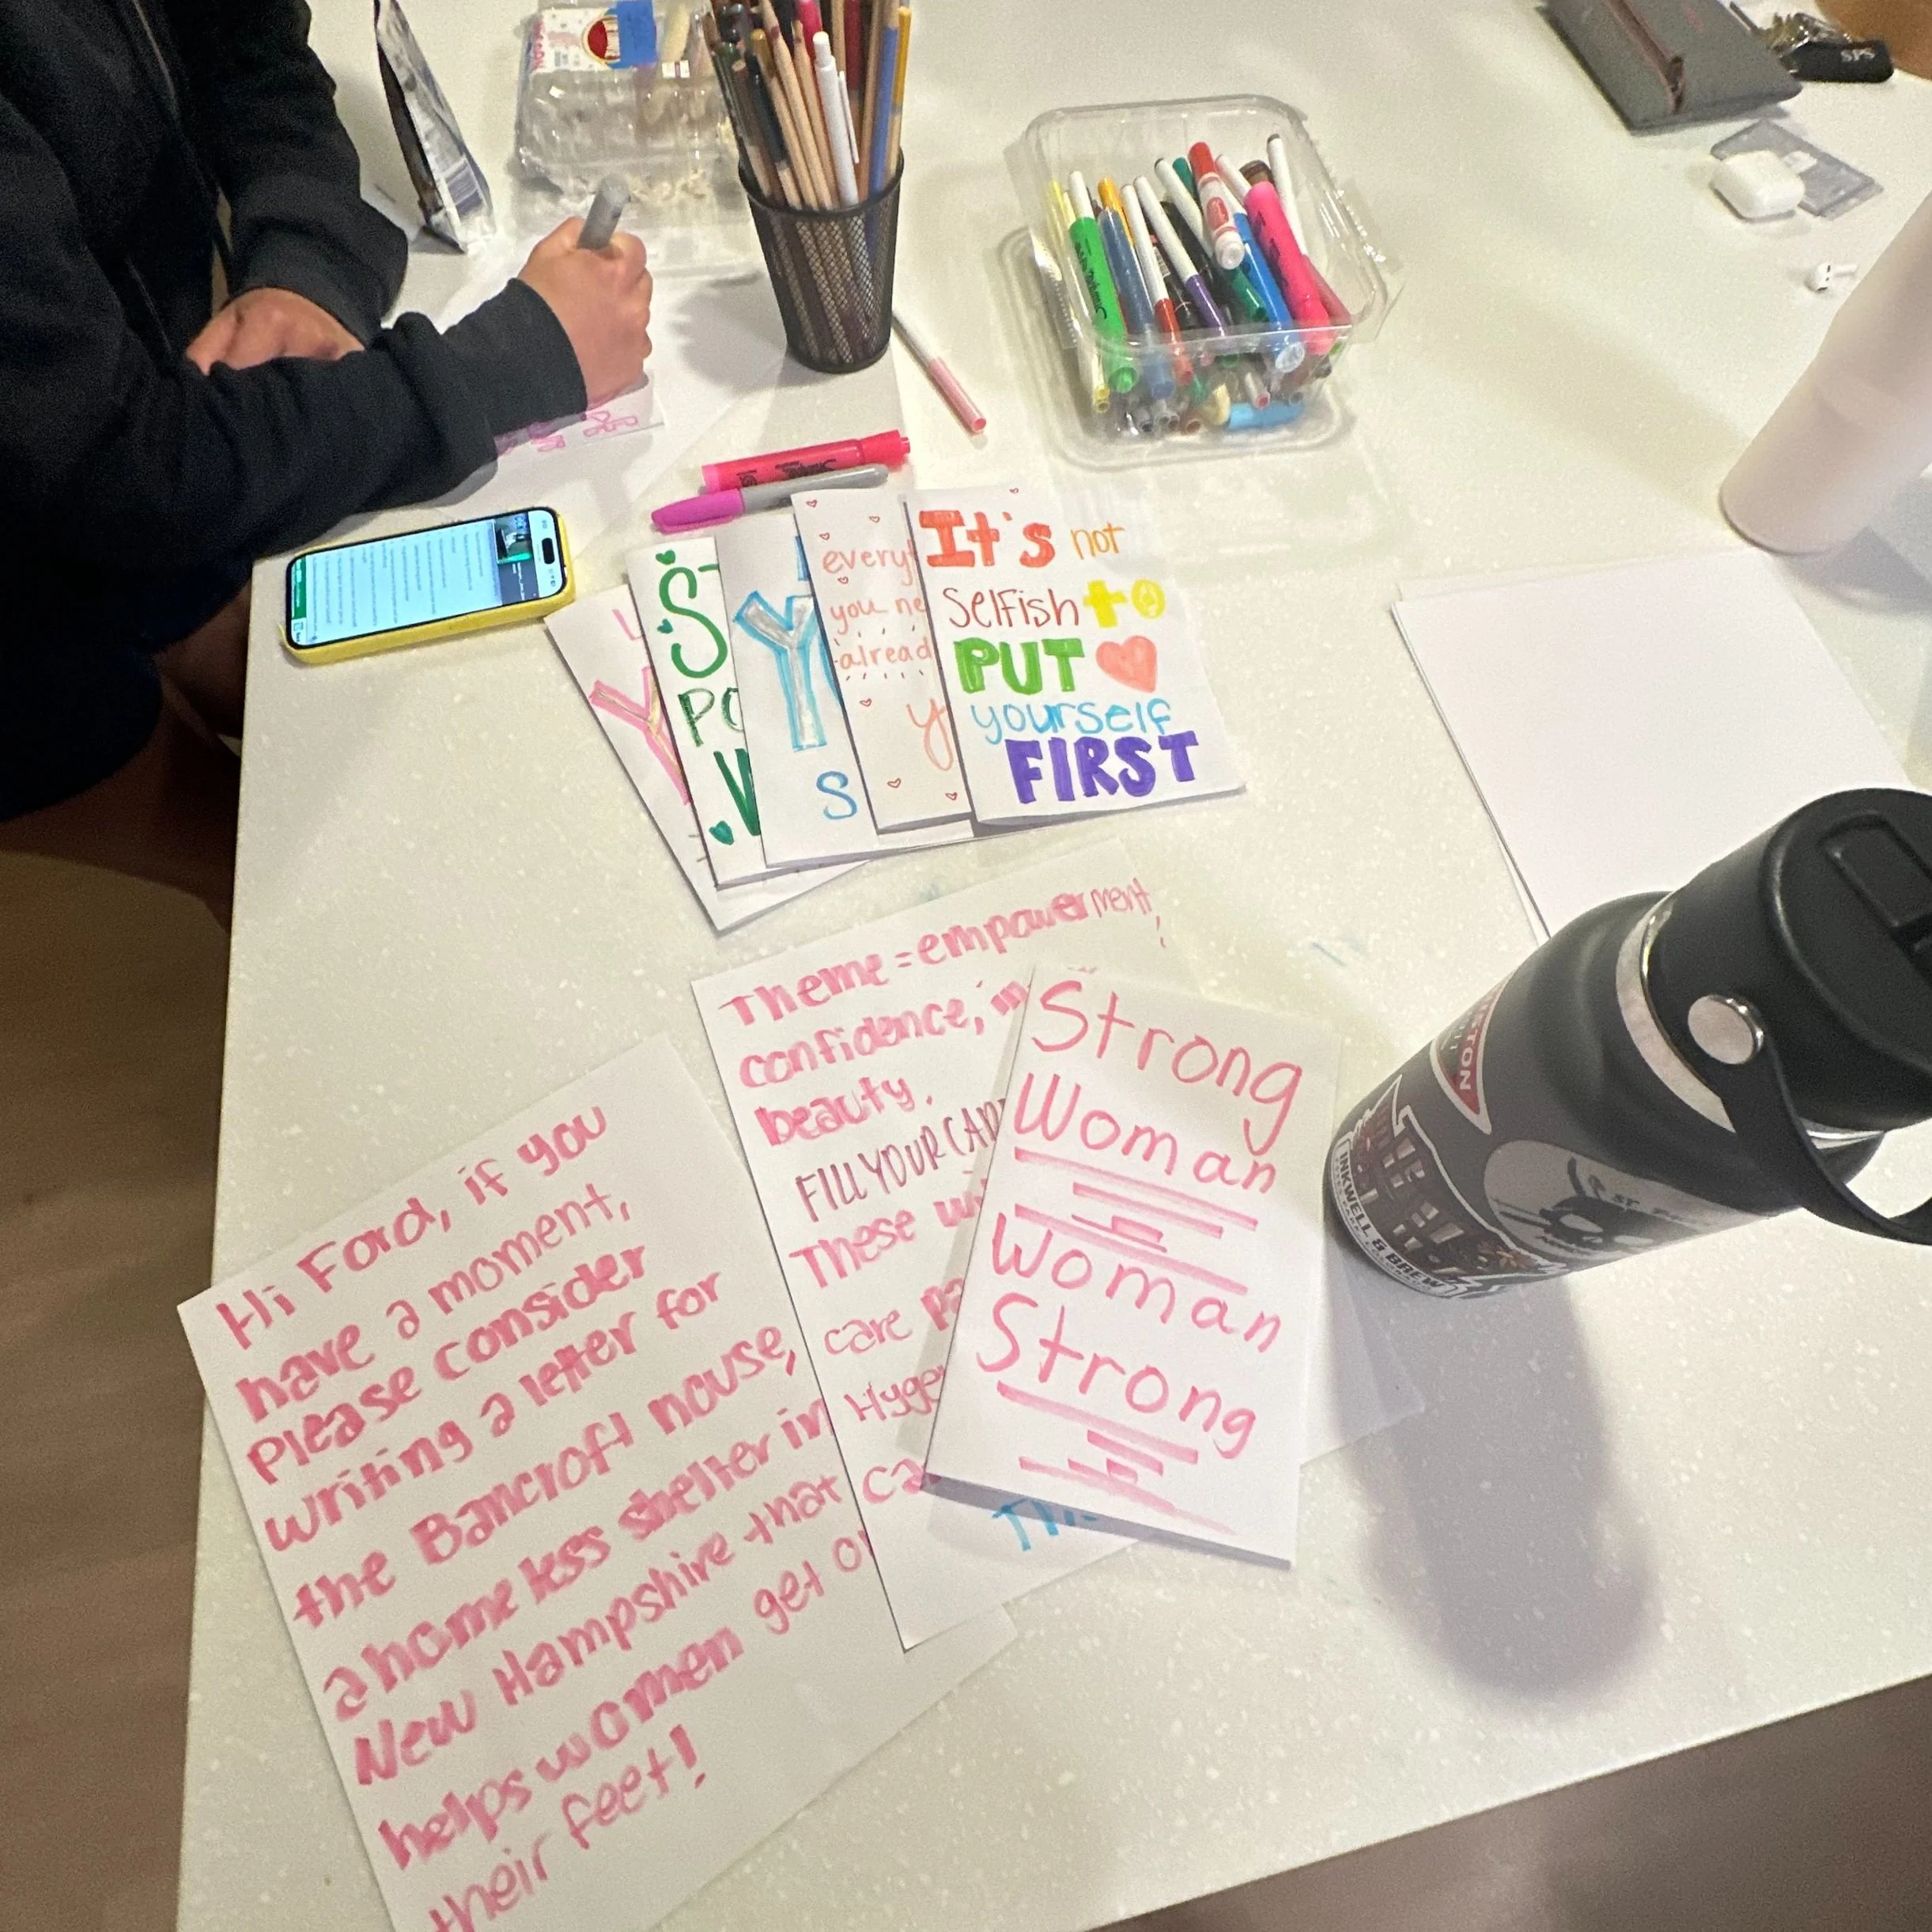 SPS
It's not
selfish to
PUT
yourself
FIRST
everyt
you ne
alread
y
Y
S
S
PO
W
Y
Theme = empowerment,
confidence, in
beauty.
FILL YOUR CAR
These wi
care pa
Hyge
ca
Th
Strong
Woman
Woman
Strong
Hi Ford, if you
have a moment,
please consider
writing a letter for
the Bancroft house,
a homeless shelter in
New Hampshire that
helps women get o
their feet!
INKWELL & BREW